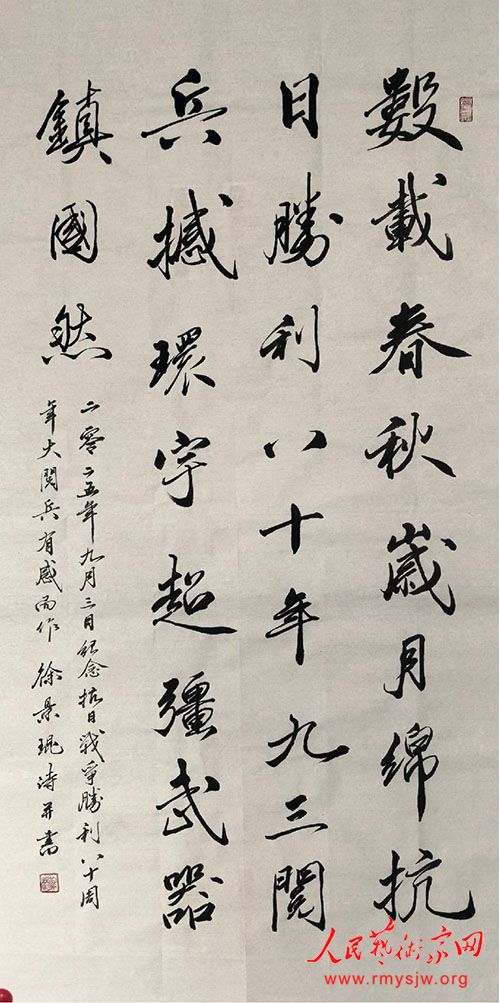 數載春秋歲月綿抗
日勝利八十年九三閱
兵撼環宇超彊武器
鎮國然
二零二五年九月三日紀念抗日戰爭勝利八十周
年大閱兵有感而作 徐景琨诗并書
人民藝術家网
www.rmysjw.org